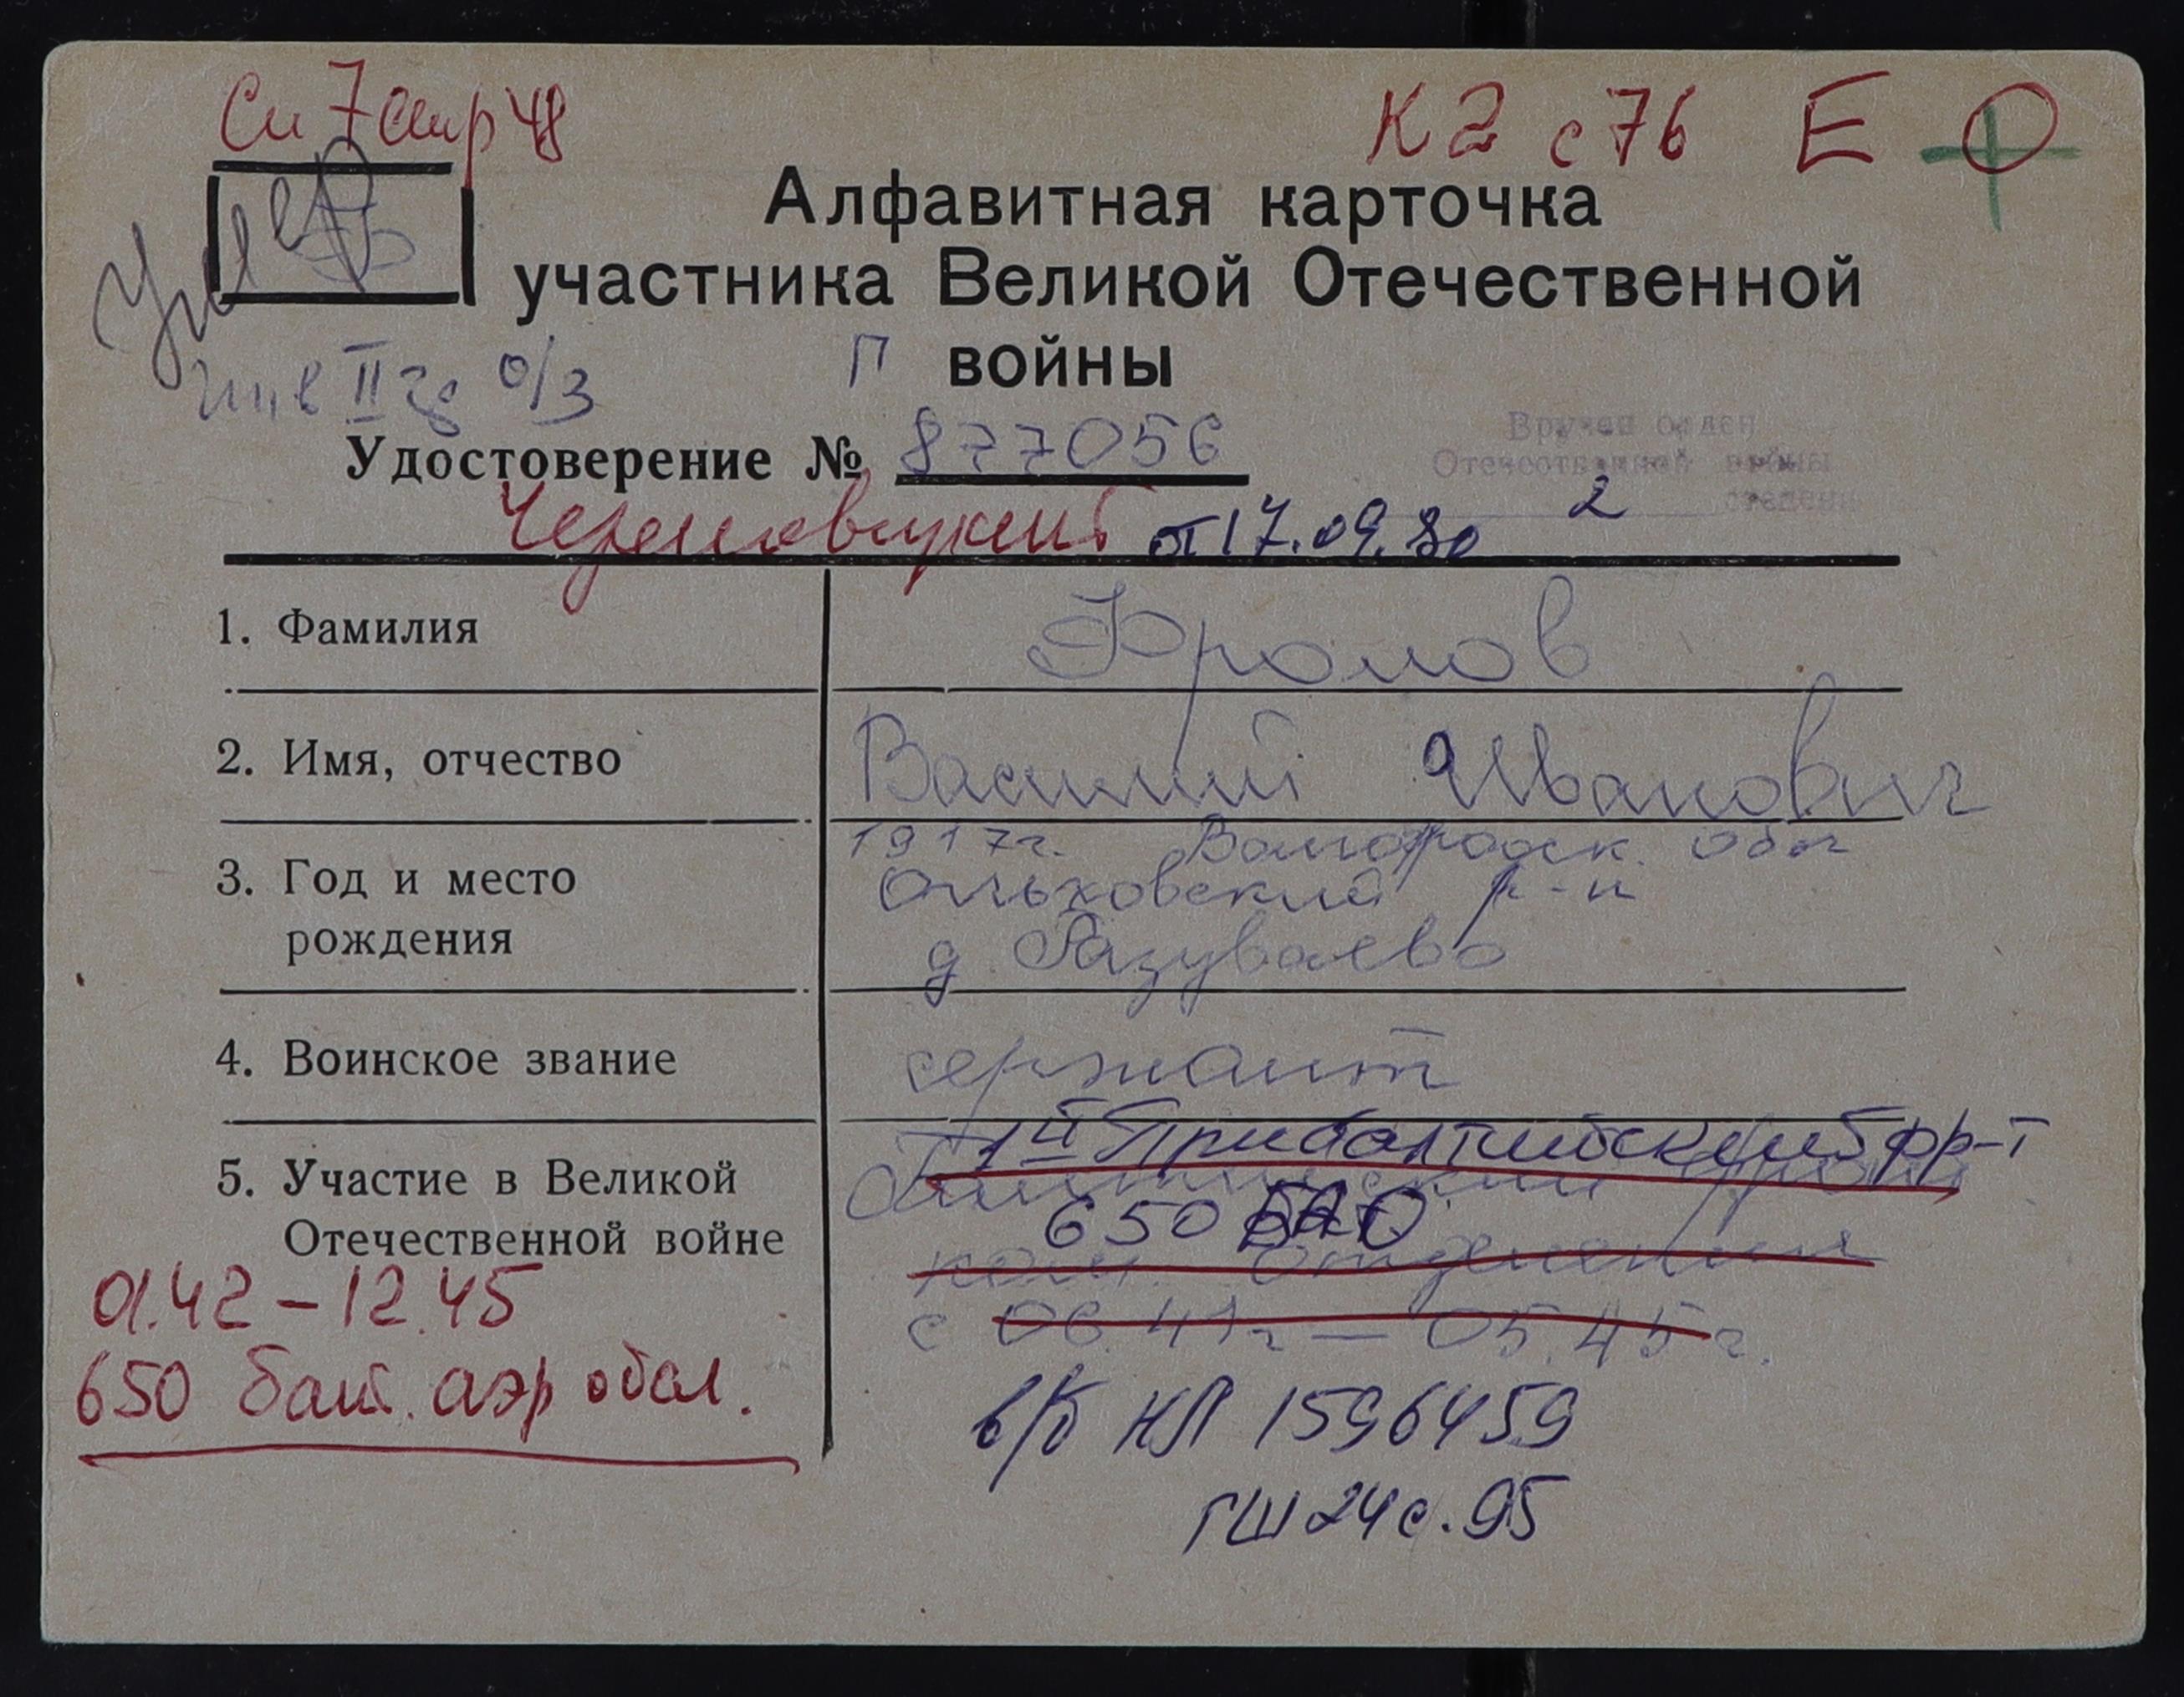 Сп 7 стр 48
К2 с 76 Е О
Алфавитная карточка
участника Великой Отечественной
войны
П
Умер
инв II гр о/з
Удостоверение № 877056
Вручен орден
Отечественной войны
2 степени
от 17.09.80
1. Фамилия
Фролов
2. Имя, отчество
Василий Иванович
3. Год и место
рождения
1917г. Волгоградск. обл
Ольховский р-н
д Разуваево
4. Воинское звание
сержант
5. Участие в Великой
Отечественной войне
1й Прибалтийский фр-т
650 БАО
ком. отделения
с 06.41г — 05.45г.
01.42 – 12.45
650 бат. аэр обсл.
в/б НЛ 1596459
ГШ 24 с. 95